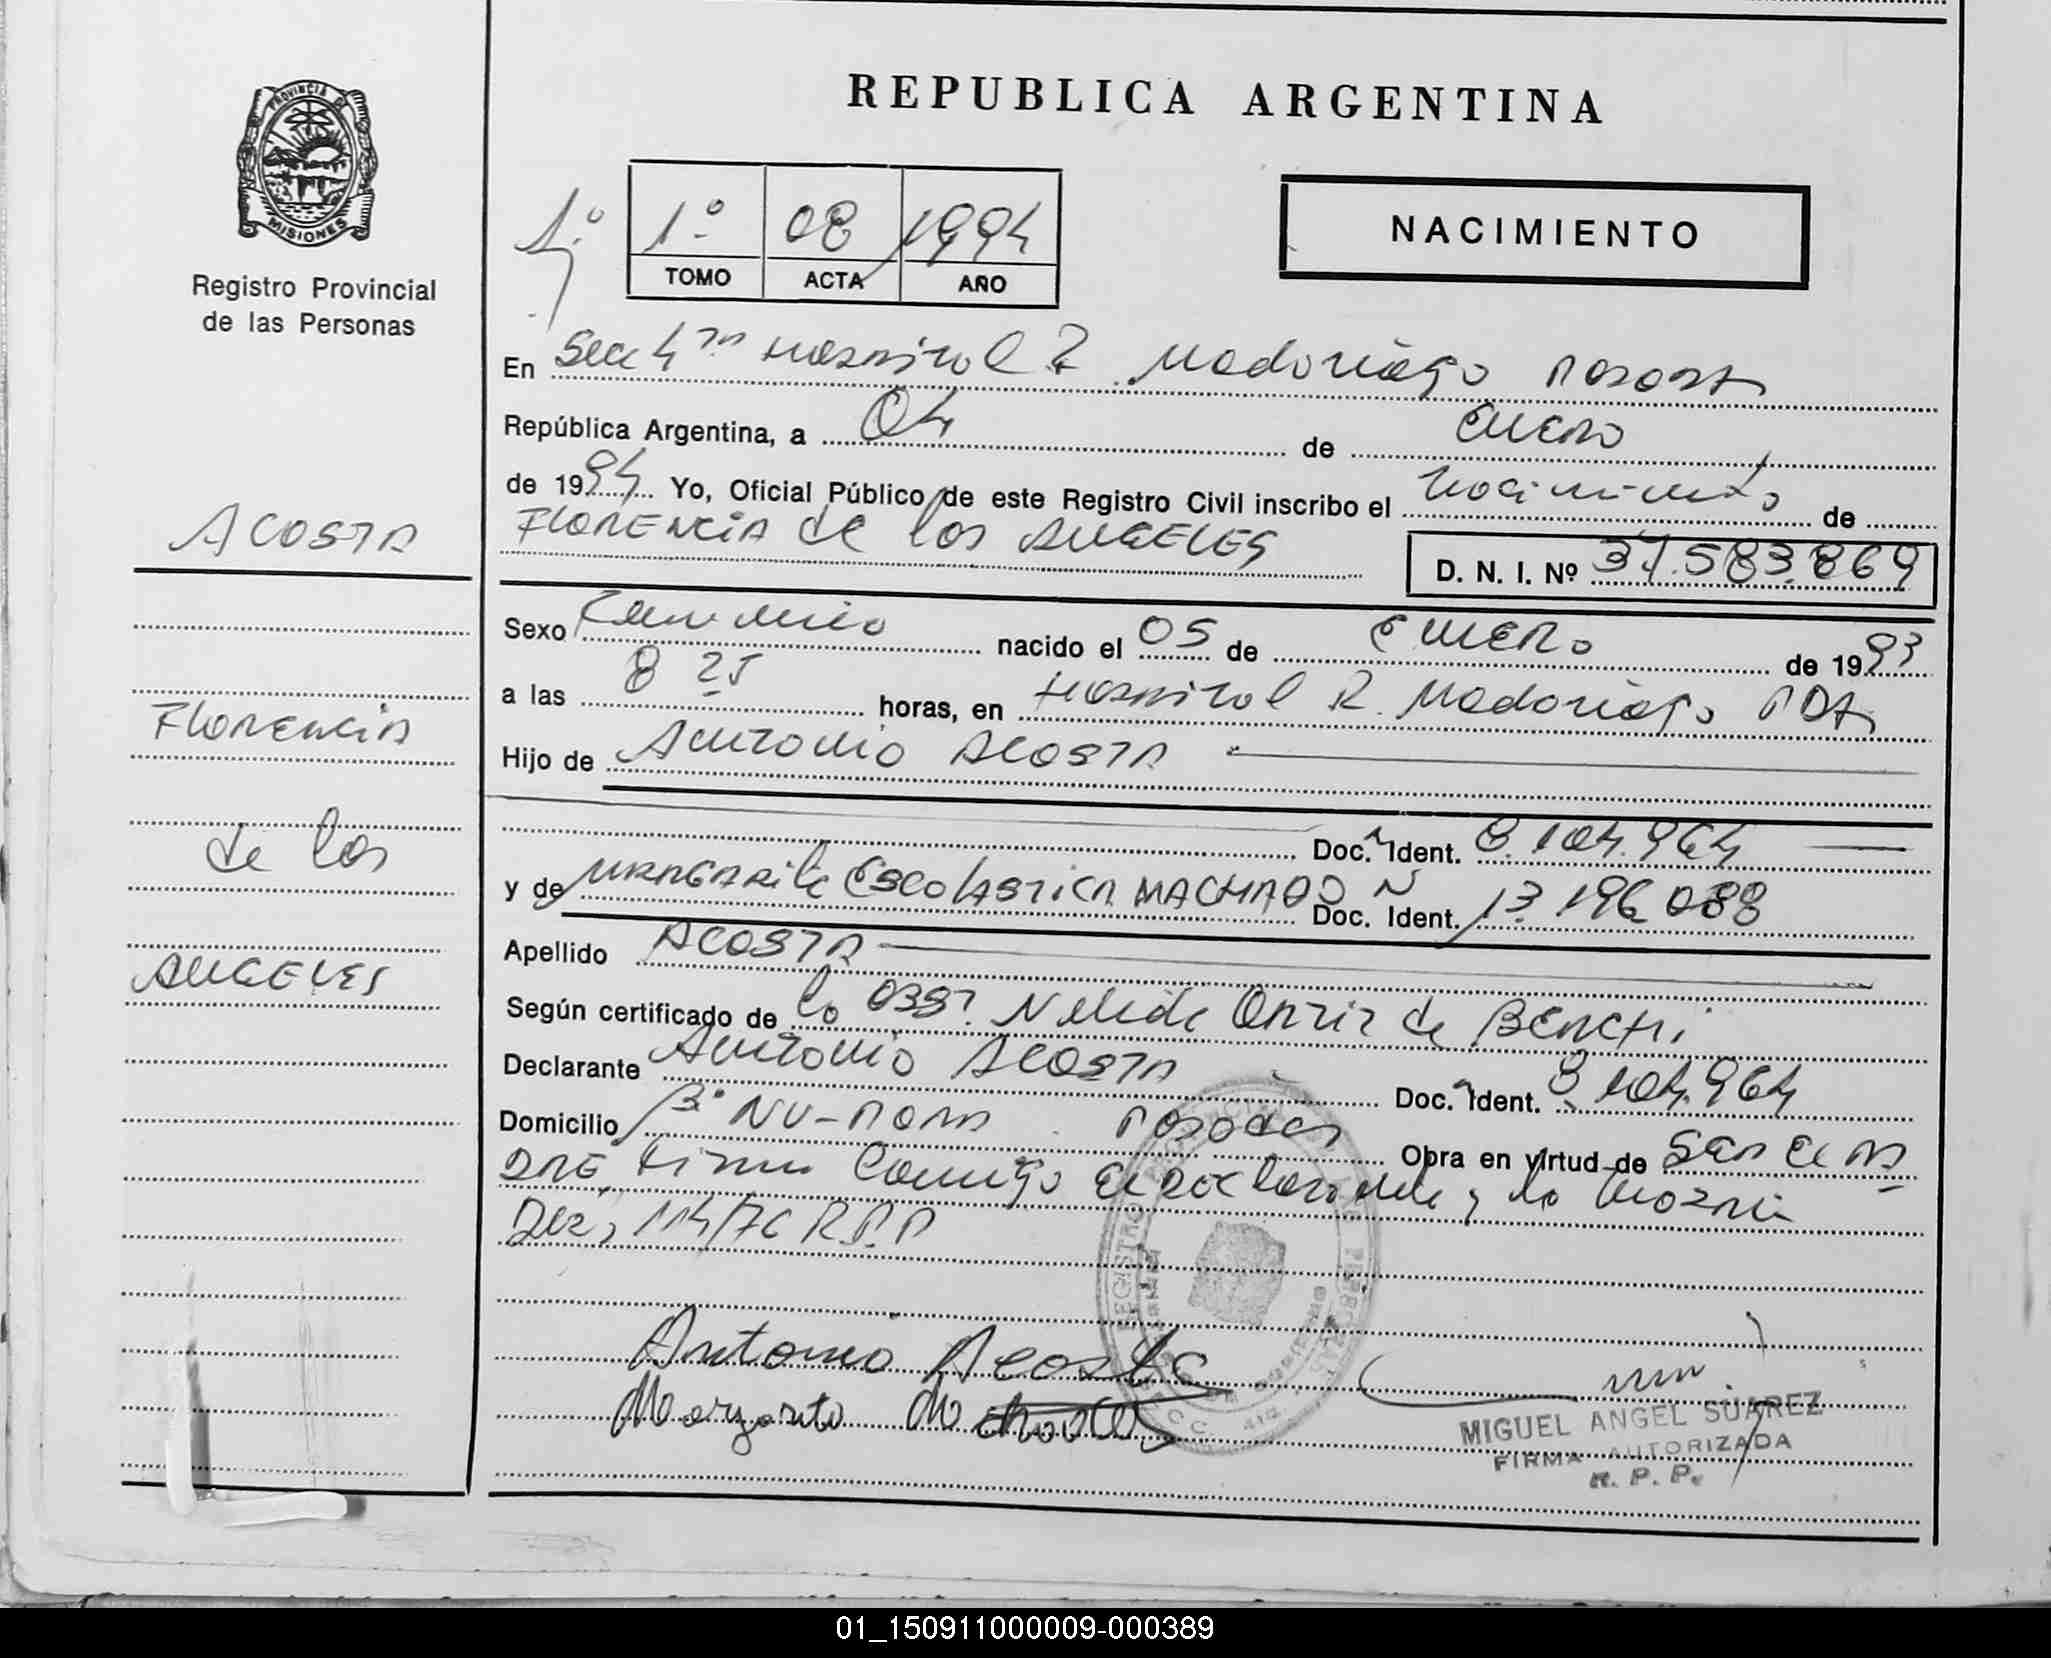 REPUBLICA ARGENTINA
PROVINCIA DE MISIONES
Registro Provincial
de las Personas
1º
1º 08 1994
TOMO ACTA AÑO
NACIMIENTO
En Secc 4ta Hospital R Madariaga Posadas
República Argentina, a 04 de Enero
de 1994 Yo, Oficial Público de este Registro Civil inscribo el Nacimiento de
FLORENCIA de los ANGELES
D. N. I. Nº 37.583.869
ACOSTA
Florencia
de los
ANGELES
Sexo Femenino nacido el 05 de ENERO de 1993
a las 8 25 horas, en Hospital R. Madariaga PDAs
Hijo de Antonio ACOSTA
Doc. Ident. 8.104.964
y de MARGARITA EscolASTICA MACHADO Doc. Ident. 13.196.088
Apellido ACOSTA
Según certificado de la Obst. Nelida Ortiz de BENCHI
Declarante Antonio ACOSTA Doc. Ident. 8.104.964
Domicilio Bº Posadas Obra en virtud de SER EL PA
DRE, Firma Conmigo el declarante y la
114/76 R.P.P
Antonio Acosta
Margarita Machado
MIGUEL ANGEL SUAREZ
FIRMA AUTORIZADA
R. P. P.
01_150911000009-000389